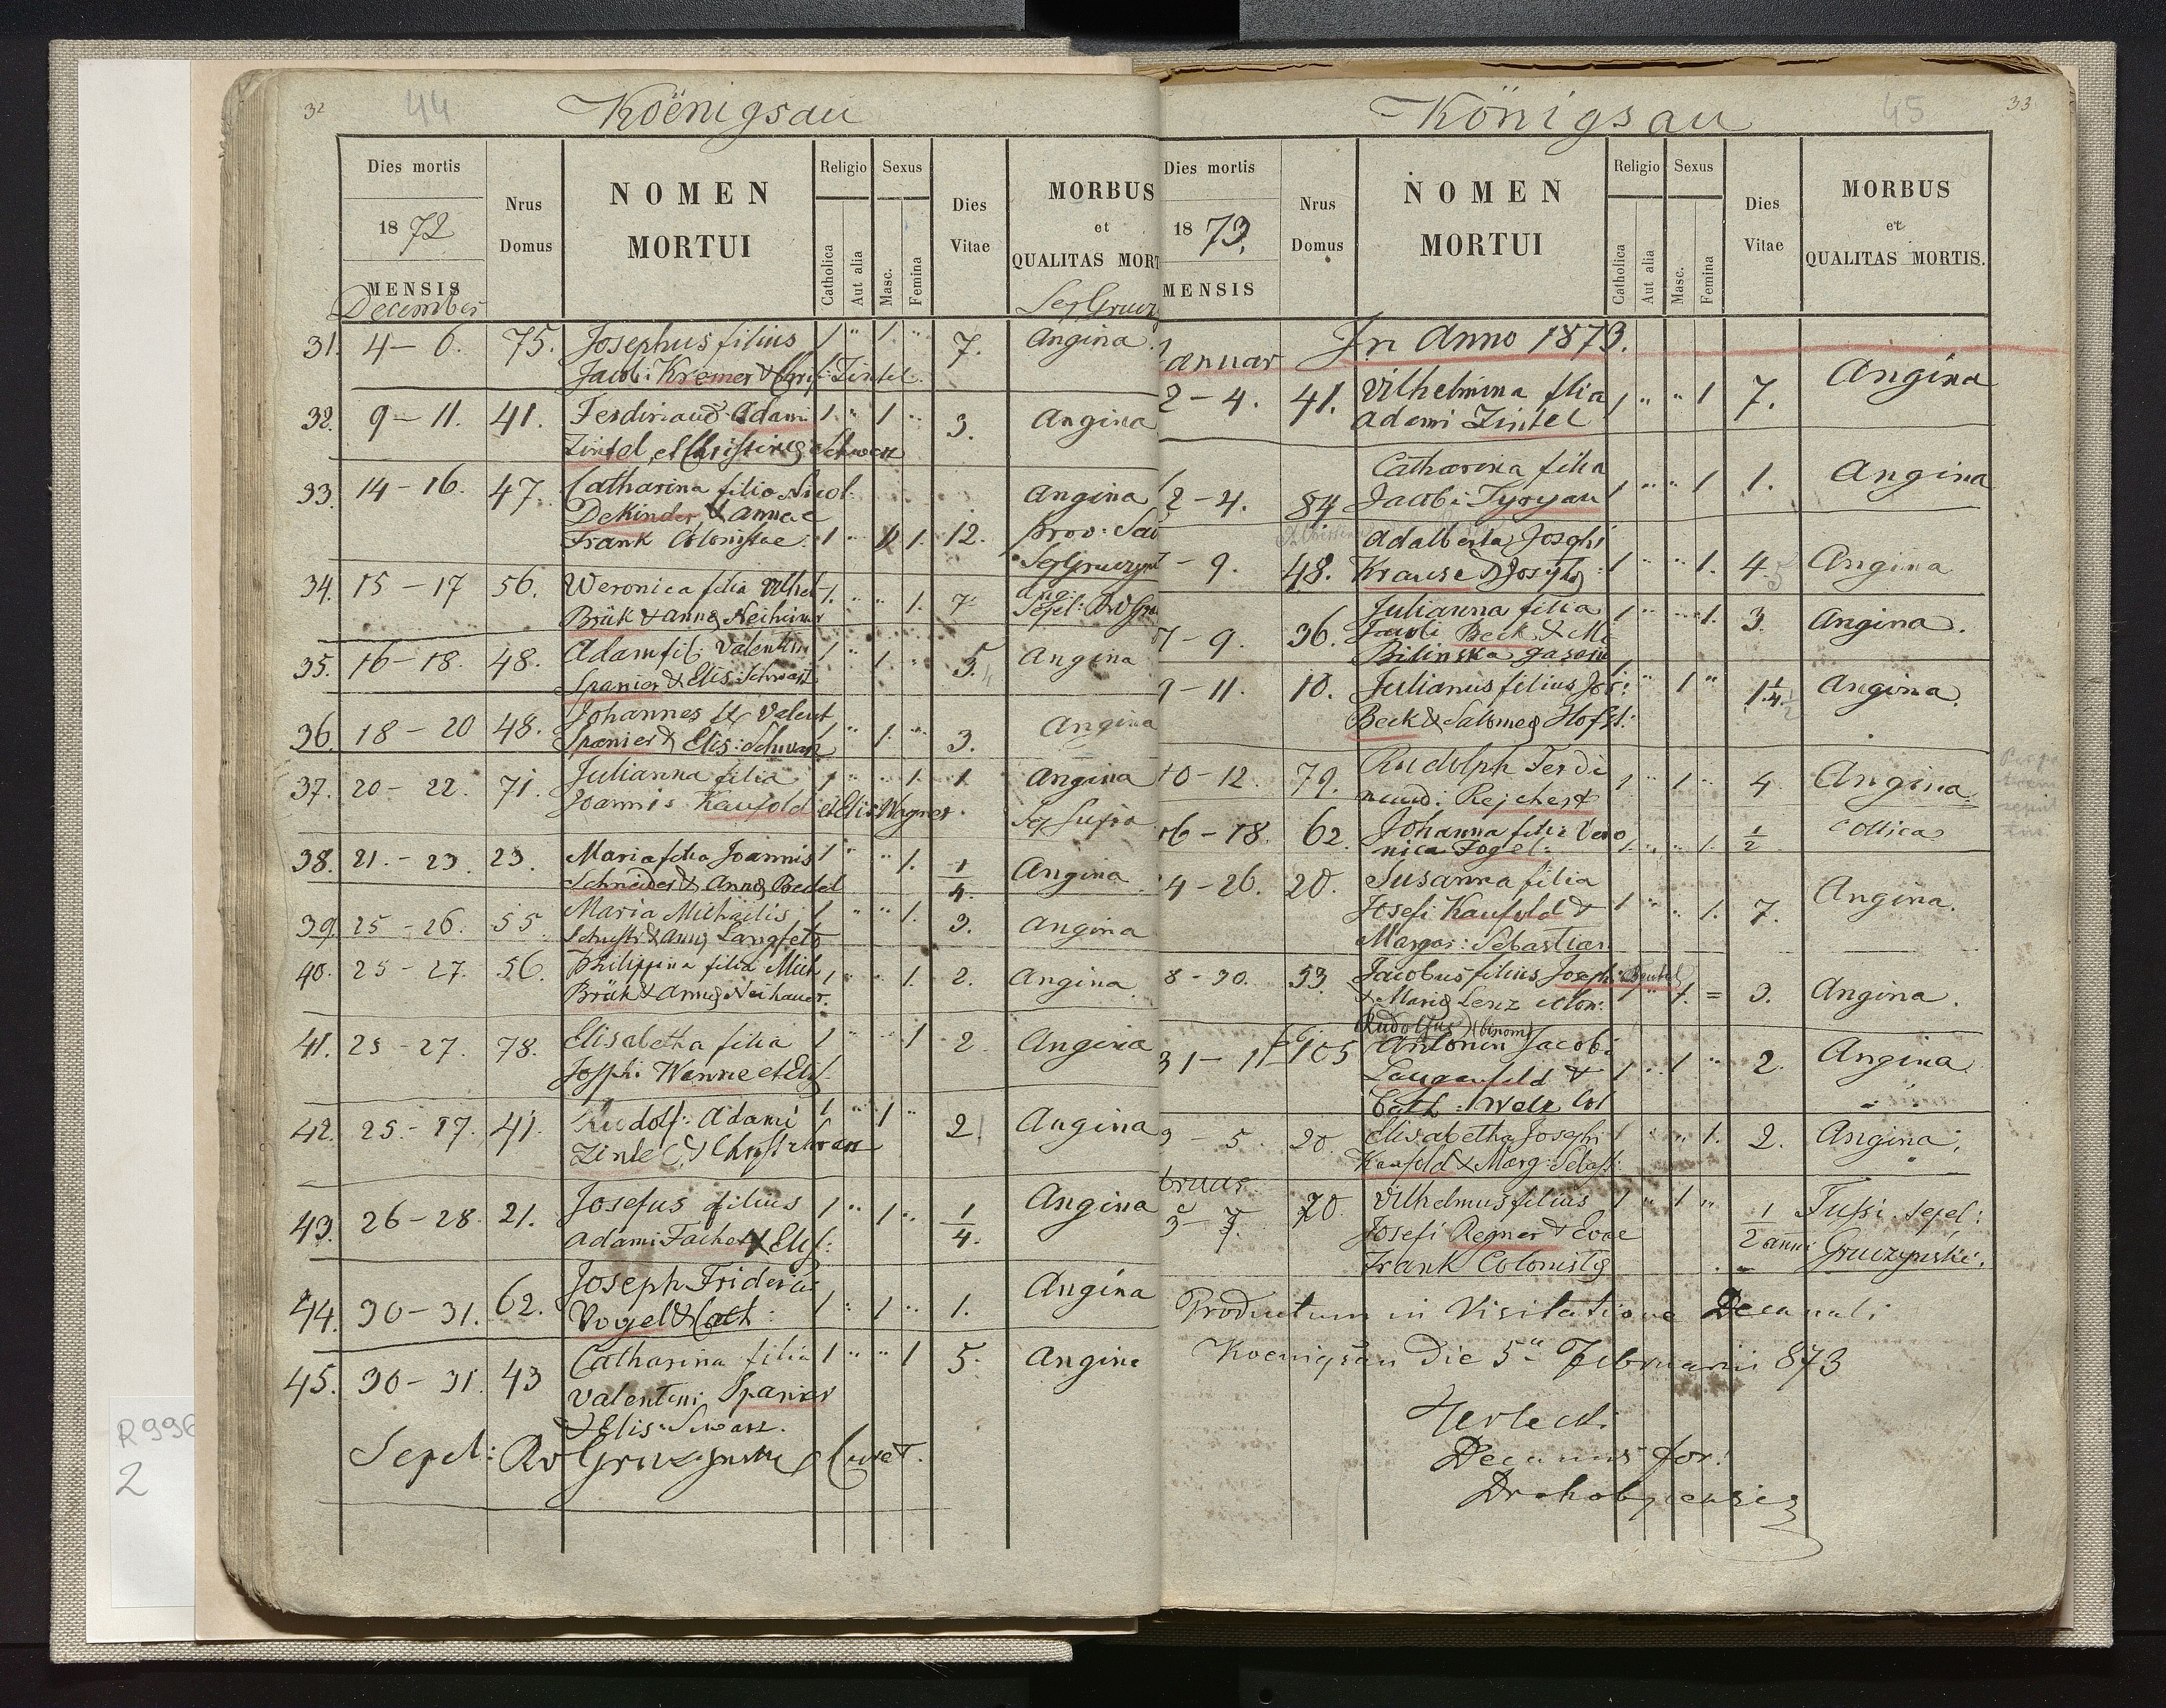 32
44
Köenigsau
Dies mortis
1872
MENSIS
December
Nrus
Domus
NOMEN
MORTUI
Religio
Catholica
Aut alia
Sexus
Masc.
Femina
Dies
Vitae
MORBUS
et
QUALITAS MORT
31. 4 – 6. 75. Josephus filius 1 " 1. " 7. Angina
Jacobi Kremer & Christ: Zintel
32. 9 – 11. 41. Ferdinand Adami 1. " 1 " 3. Angina
Zintel et Christinae Schwarz
33. 14 – 16. 47. Catharina filia Nicol: Angina
DeKinder & Annae
Frank Colonistae. 1 " 1. 12.
34. 15 – 17 56. Weronica filia Vilhel 1. " " 1. 7
Brük & Anna Neiheimer
35. 16 – 18. 48. Adam fil: Valentin 1 " 1. " 5. Angina
Spanier & Elis: Schwarz
36. 18 – 20 48. Johannes fil Valent 1 " 1. " 3. Angina
Spanier & Elis: Schwarz
37. 20 – 22. 71. Julianna filia 1 " " 1. 1. Angina
Joannis Kaufold et Elis Wagner
38. 21. – 23. 23. Maria filia Joannis 1 " " 1. 1/4. Angina
Schneider & Anna Bedel
39. 25 – 26. 55. Maria Michaelis 1 " " 1. 3. Angina
40. 25 – 27. 56. Philippina filia Mich 1 " " 1. 2. Angina
Brük & Anna Neihauer.
41. 25 – 27. 78. Elisabetha filia 1 " " 1 2. Angina
Josephi Wanne et Elis:
42. 25. – 27. 41. Rudolf: Adami 1 " 1 " 2 Angina
Zintel & Christ Schwarz
43. 26 – 28. 21. Josefus filius 1 " 1 " 1/4. Angina
Adami Facher & Elis:
44. 30 – 31. 62. Joseph Friderici
Vogel & Cath: 1 " 1 " 1. Angina
45. 30 – 31. 43 Catharina filia 1 " " 1 5. Angina
Valentini Spanier
& Elis: Swarz.
Sepel: Rd Gruszynski
33
45
Königsau
Dies mortis
1873.
MENSIS
Nrus
Domus
NOMEN
MORTUI
Religio
Catholica
Aut alia
Sexus
Masc.
Femina
Dies
Vitae
MORBUS
et
QUALITAS MORTIS.
In Anno 1873.
anuar
2 – 4. 41. Vilhelmina filia 1 " " 1 7. Angina
Adami Zintel
Catharina filia
2 – 4. 84 Jacobi Tyryan 1 " " 1 1. Angina
Adalberta Josephi
– 9. 48. Krause & Josepha 1 " " 1. 4 Angina
Julianna filia
7 – 9. 36. Jacobi Beck & Ma 1 " " 1. 3. Angina.
Bilinska
9 – 11. 10. Julianus filius Jos: 1 " 1 " 1 1/4. Angina.
Beck & Salomea Hofst:
10 – 12. 79. Rudolph Ferdi 1 " 1 " 4 Angina.
nandi Rejchert
16 – 18. 62. Johanna filia Vero 1. " " 1. 1/2 Collica
nica Fogel:
4 – 26. 20. Susanna filia
Josefi Kaufold & 1 " " 1. 7. Angina.
Margar: Sebastian
8 – 30. 53. Jacobus filius Joseph
& Maria Lenz colon: 1 " 1. = 3. Angina.
Rudolfus (binom)
31 – 1 105 Antonin Jacobi
Langenfeld & 1 " 1 " 2. Angina
Cath: Welz Col
3 – 5. 20. Elisabetha Josephi 1 " " 1. 2. Angina.
Kaufold & Marg: Sebast:
bruar
5 – 7. 70 Vilhelmus filius 1 " 1 " 1/2 anni Tussi Sepel:
Josefi Regner & Evae Gruszynski.
Frank Colonista
Productum in Visitatione Decanali
Koenigsau Die 5a Februarii 873
Decanus for:
Drohobycensis
R996
2